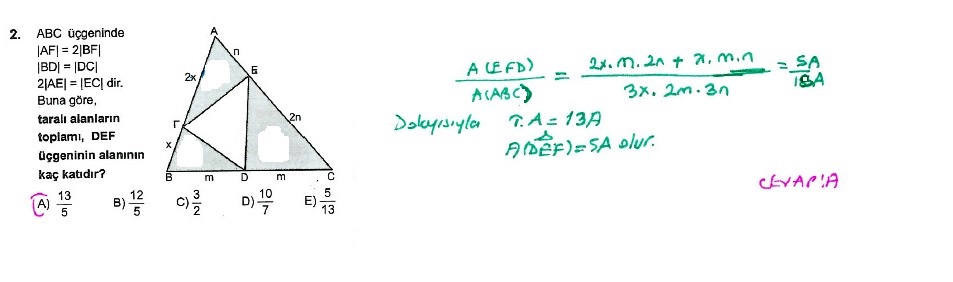 2. ABC üçgeninde
|AF| = 2|BF|
|BD| = |DC|
2|AE| = |EC| dir.
Buna göre,
taralı alanların
toplamı, DEF
üçgeninin alanının
kaç katıdır?
A) 13/5 B) 12/5 C) 3/2 D) 10/7 E) 5/13
A
n
E
2x
2n
F
x
B m D m C
A(EFD)/A(ABC) = 2x.m.2n + x.m.n / 3x.2m.3n = 5A/18A
Dolayısıyla T.A = 13A
A(DEF) = 5A olur.
CEVAP:A